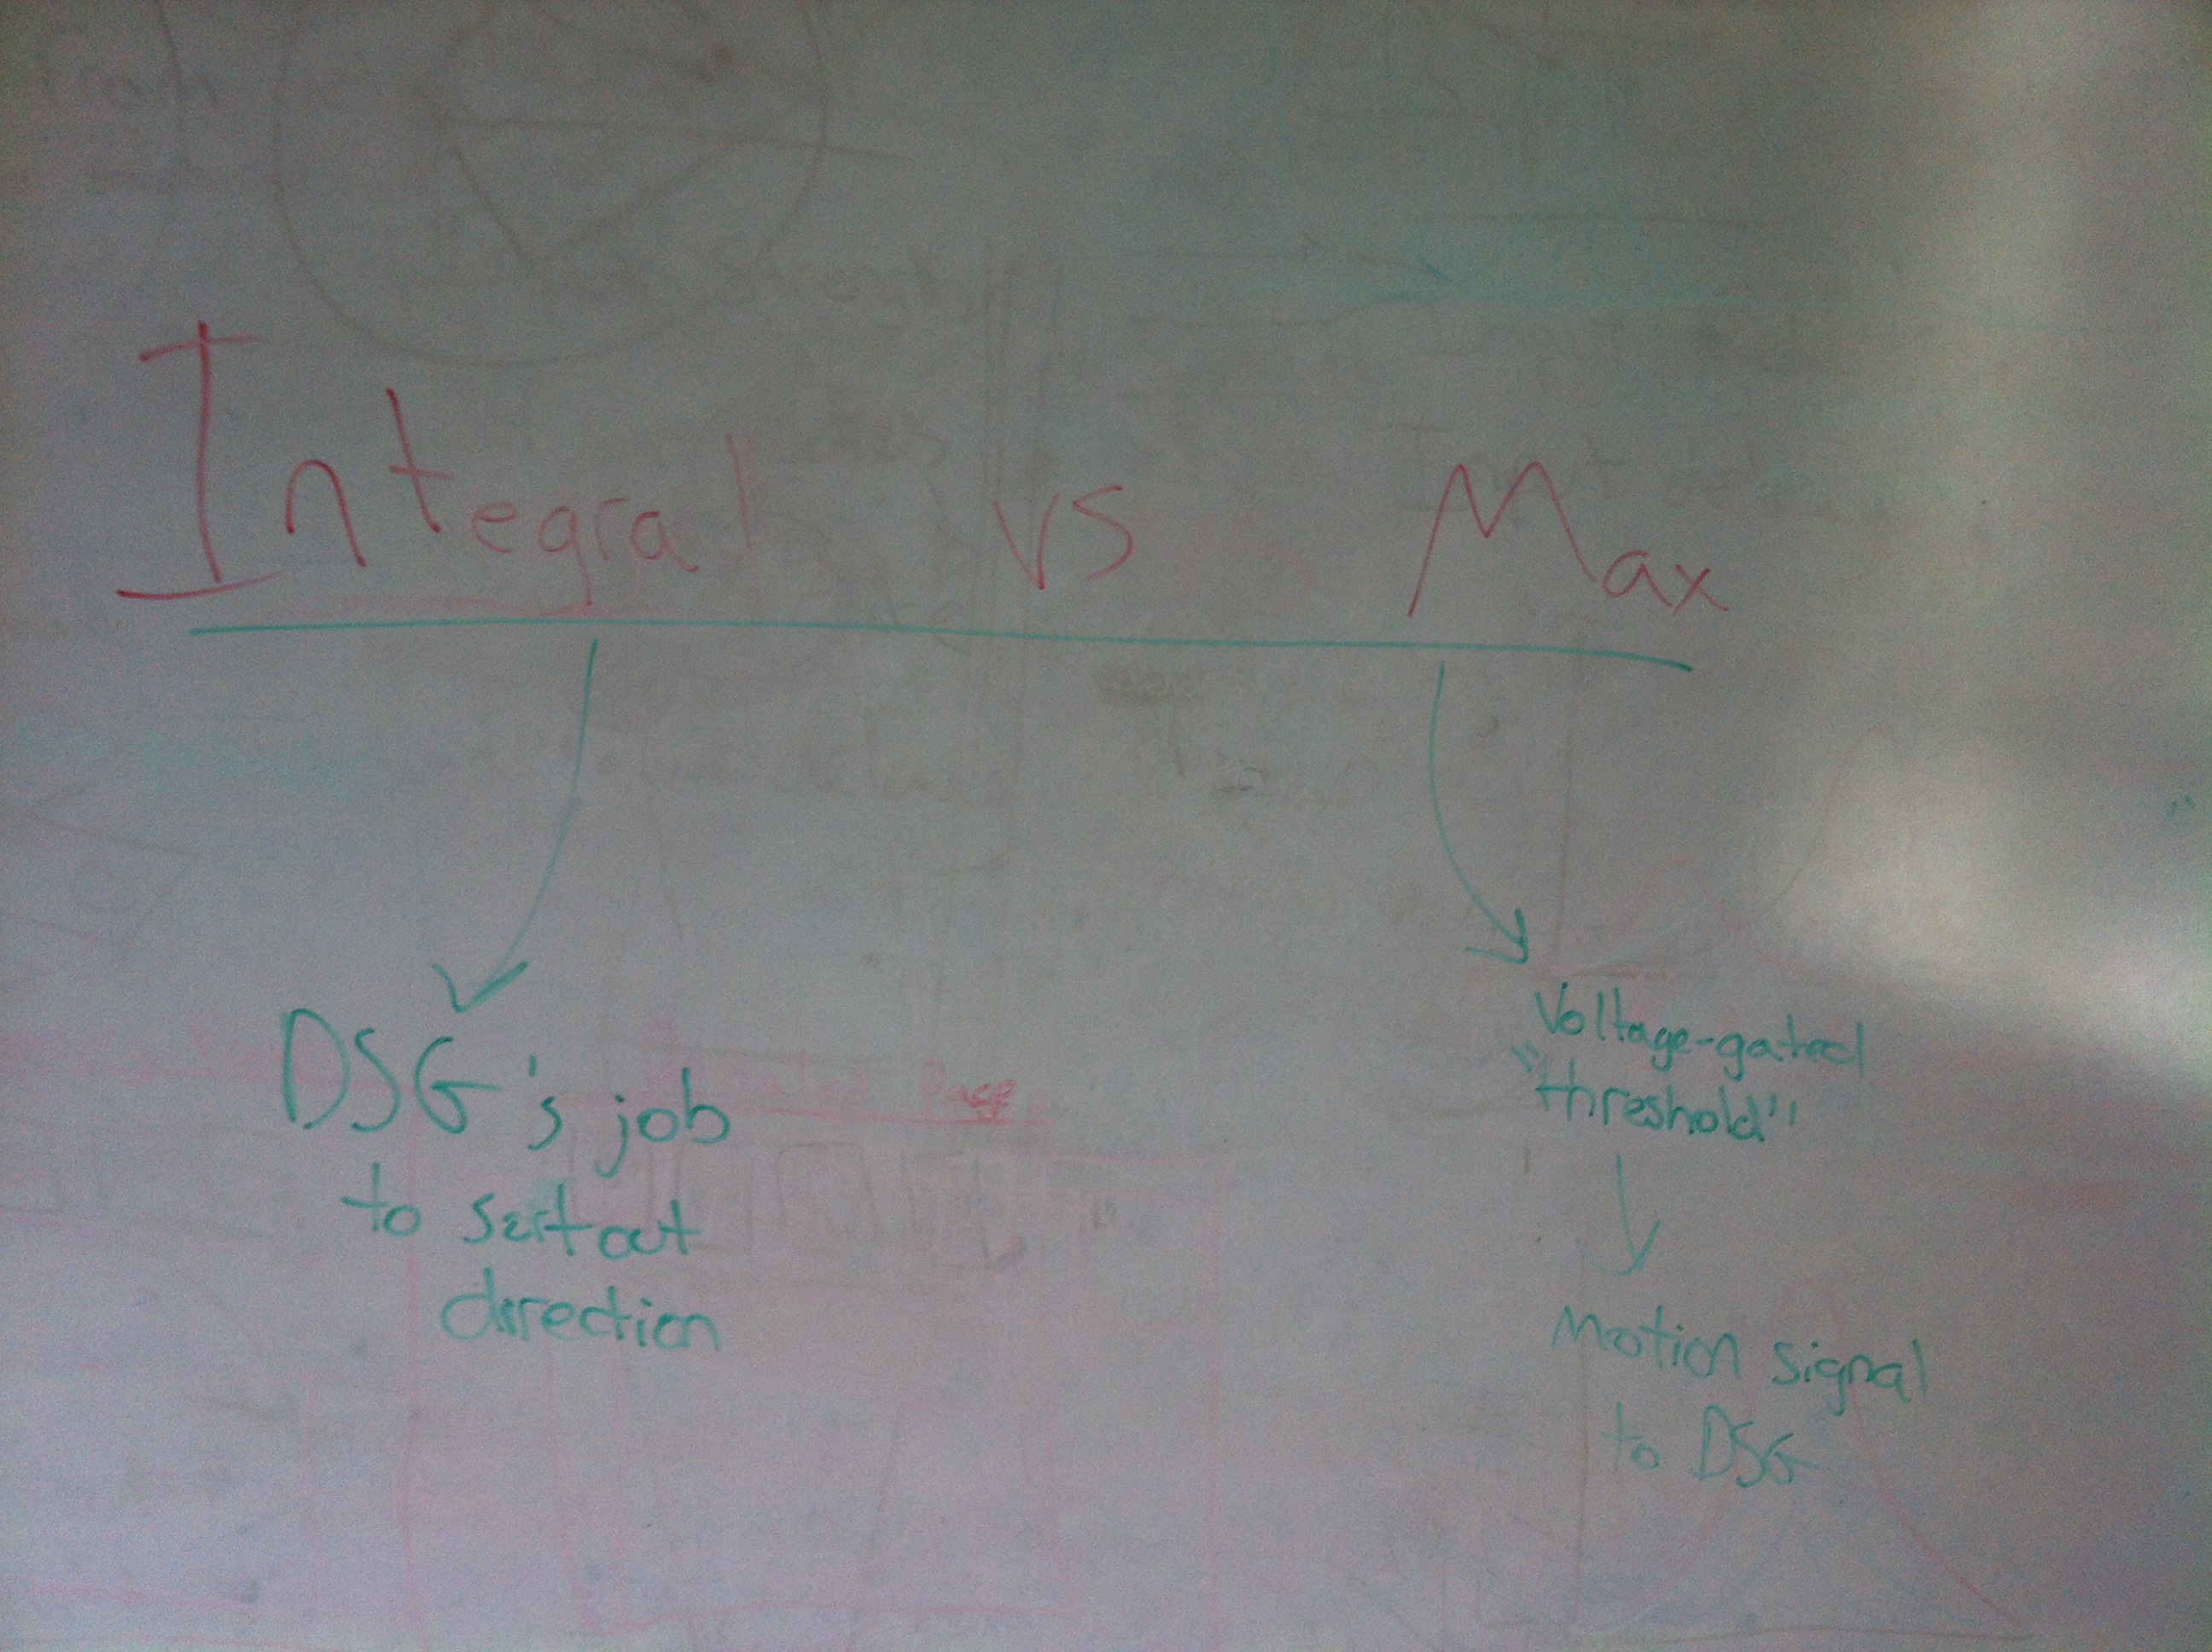 Integral vs Max
DSG's job
to sort out
direction
Voltage-gated
"threshold"
Motion signal
to DSG